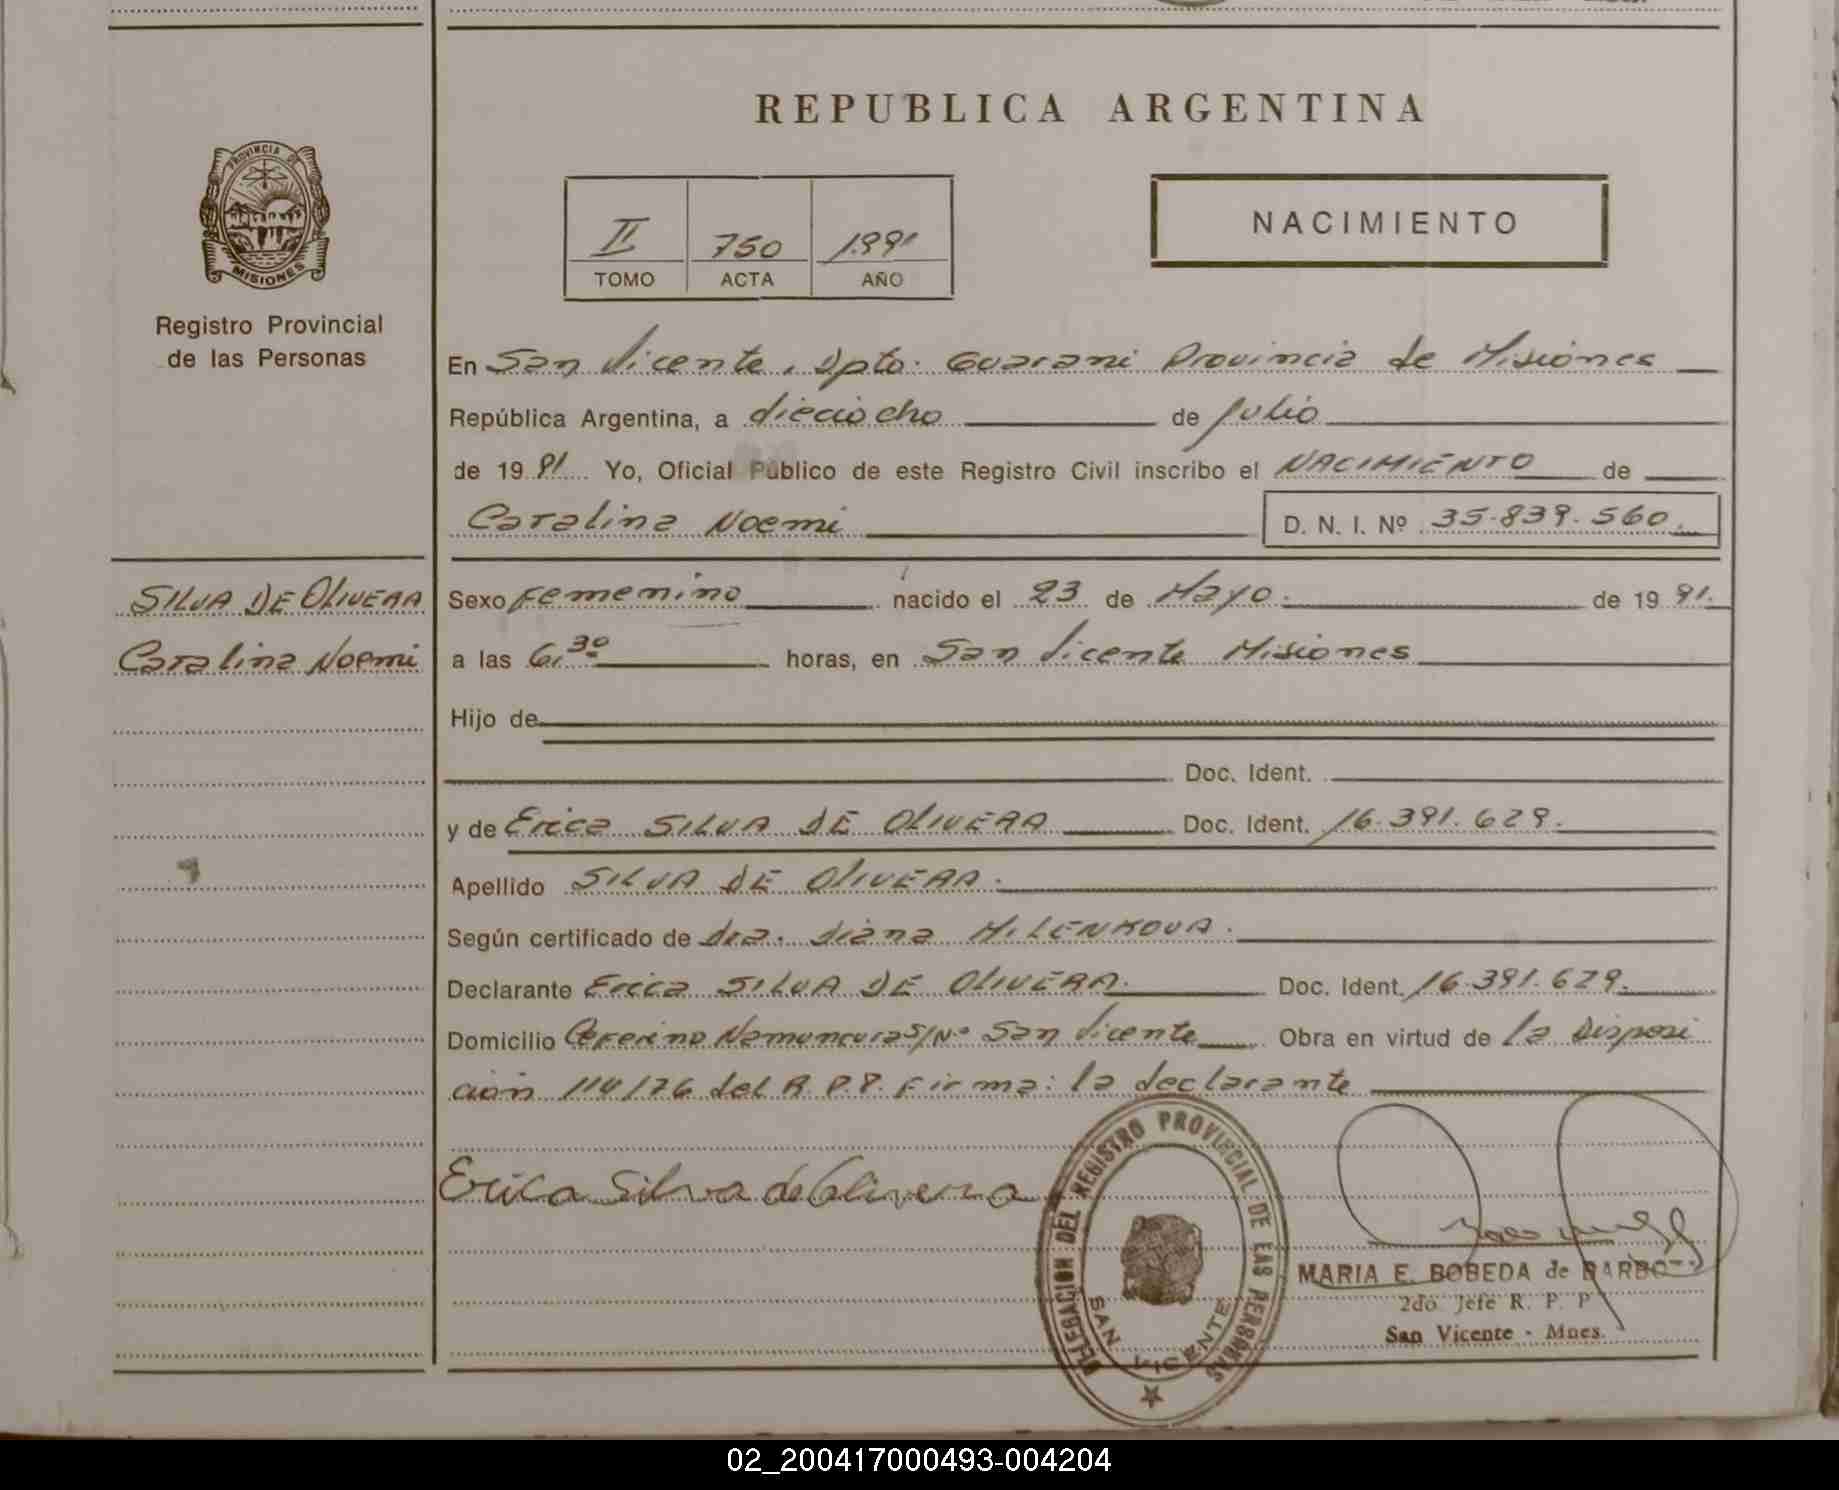 REPUBLICA ARGENTINA
PROVINCIA DE
MISIONES
Registro Provincial
de las Personas
II 750 1991
TOMO ACTA AÑO
NACIMIENTO
En San Vicente, Dpto. Guarani Provincia de Misiones
República Argentina, a dieciocho de Julio
de 1991 Yo, Oficial Público de este Registro Civil inscribo el NACIMIENTO de
Catalina Noemi D. N. I. Nº 35.839.560.
SILVA DE OLIVERA
Catalina Noemi
Sexo Femenino nacido el 23 de Mayo. de 1991.
a las 6,30 horas, en San Vicente Misiones
Hijo de
Doc. Ident.
y de Erica SILVA DE OLIVERA Doc. Ident. 16.391.629.
Apellido SILVA DE OLIVERA.
Según certificado de Dra. Diana MILENKOVA.
Declarante Erica SILVA DE OLIVERA. Doc. Ident. 16.391.629.
Domicilio Ceferino Namuncura S/Nº San Vicente Obra en virtud de la Disposi
ción 114/76 del R.P.P. Firma: la declarante
Erica Silva de Olivera
DELEGACION DEL REGISTRO PROVINCIAL DE LAS PERSONAS
SAN VICENTE
MARIA E. BOBEDA de
2do. Jefe R. P. P
San Vicente - Mnes.
02_200417000493-004204